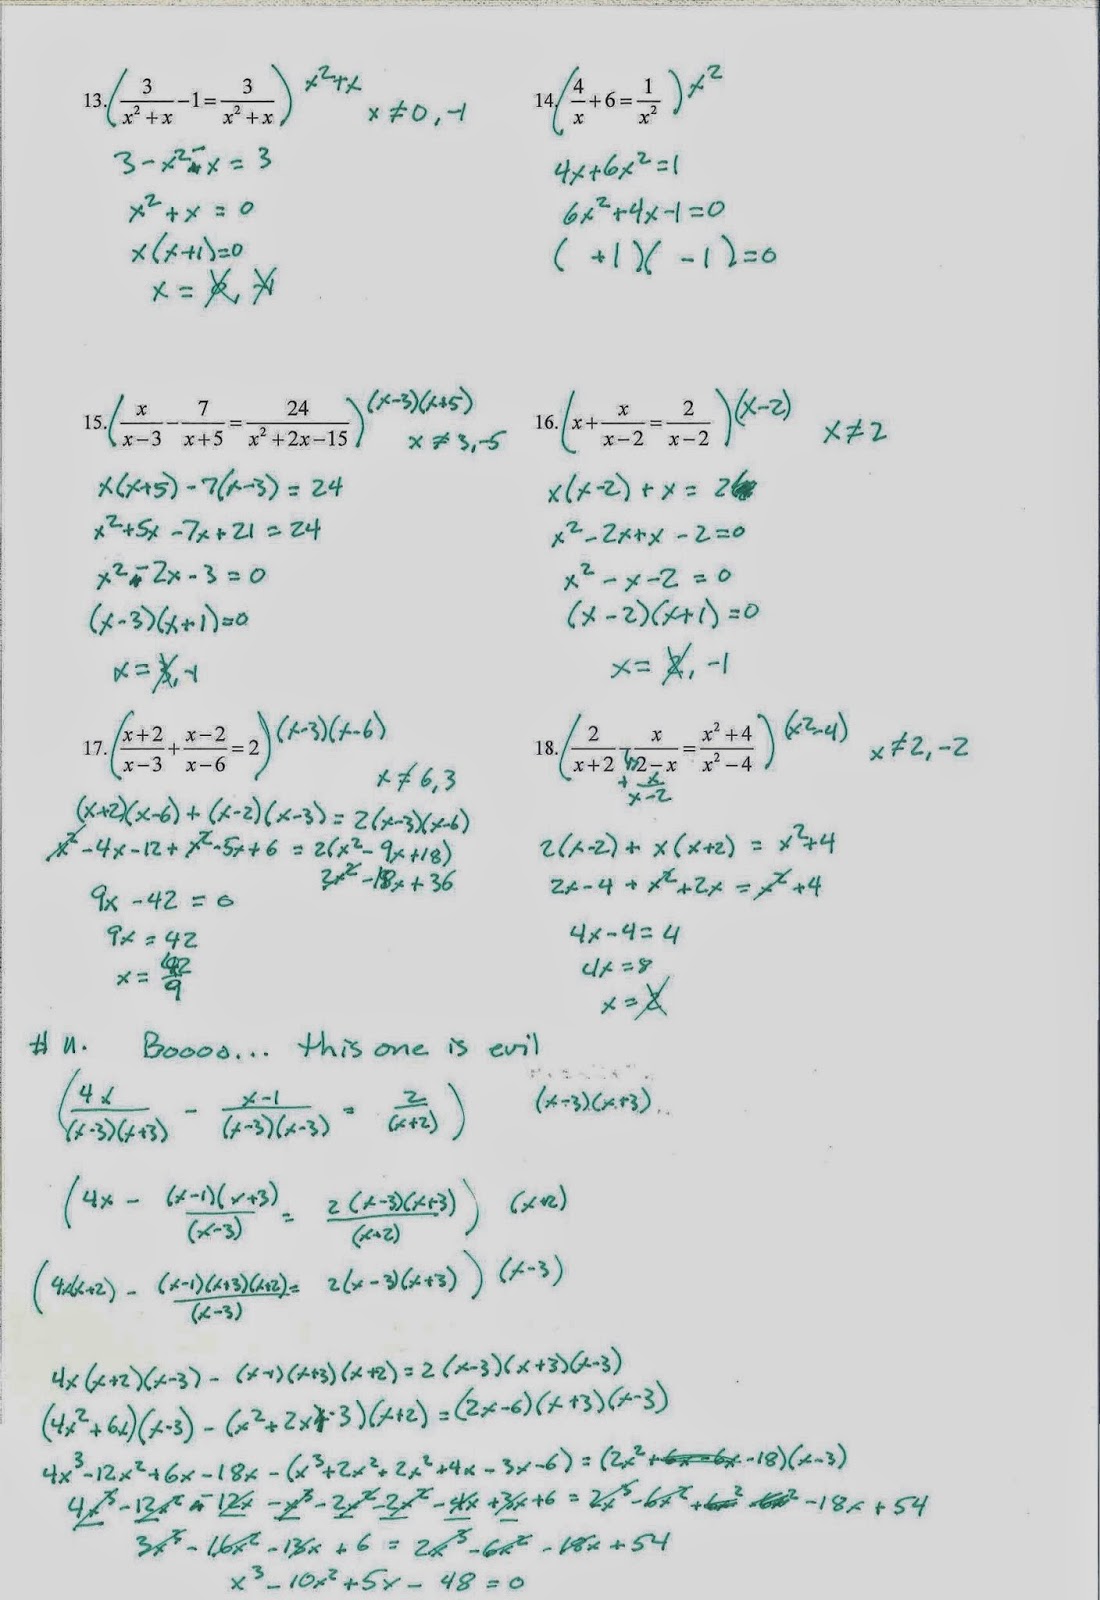 13. ( 3/(x²+x) - 1 = 3/(x²+x) ) x²+x  x≠0, -1
3 - x² - x = 3
x² + x = 0
x(x+1)=0
x = 0, -1
14. ( 4/x + 6 = 1/x² ) x²
4x+6x²=1
6x²+4x-1=0
( +1)( -1)=0
15. ( x/(x-3) - 7/(x+5) = 24/(x²+2x-15) ) (x-3)(x+5)
x ≠ 3, -5
x(x+5) - 7(x-3) = 24
x²+5x -7x+21 = 24
x² - 2x - 3 = 0
(x-3)(x+1)=0
x = 3, -1
16. ( x + x/(x-2) = 2/(x-2) ) (x-2)  x≠2
x(x-2) + x = 2
x² - 2x+x - 2=0
x² - x - 2 = 0
(x-2)(x+1)=0
x= 2, -1
17. ( (x+2)/(x-3) + (x-2)/(x-6) = 2 ) (x-3)(x-6)
x ≠ 6, 3
(x+2)(x-6) + (x-2)(x-3) = 2(x-3)(x-6)
x² - 4x - 12 + x² - 5x + 6 = 2(x² - 9x + 18)
2x² - 18x + 36
9x - 42 = 0
9x = 42
x = 42/9
18. ( 2/(x+2) - x/(2-x) = (x²+4)/(x²-4) ) (x²-4)  x≠2, -2
+ x/(x-2)
2(x-2) + x(x+2) = x²+4
2x-4 + x²+2x = x²+4
4x-4=4
4x=8
x=2
# 11. Boooo... this one is evil
( 4x/((x-3)(x+3)) - (x-1)/((x-3)(x-3)) = 2/(x+2) ) (x-3)(x+3)
( 4x - (x-1)(x+3)/(x-3) = 2(x-3)(x+3)/(x+2) ) (x+2)
( 4x(x+2) - (x-1)(x+3)(x+2)/(x-3) = 2(x-3)(x+3) ) (x-3)
4x(x+2)(x-3) - (x-1)(x+3)(x+2) = 2(x-3)(x+3)(x-3)
(4x²+6x)(x-3) - (x²+2x-3)(x+2) = (2x-6)(x+3)(x-3)
4x³-12x²+6x-18x - (x³+2x²+2x²+4x-3x-6) = (2x²+6x-6x-18)(x-3)
4x³-12x² - 12x - x³ - 2x² - 2x² - 4x + 3x + 6 = 2x³-6x² +6x² -6x² -18x + 54
3x³ - 16x² - 13x + 6 = 2x³ - 6x² - 18x + 54
x³ - 10x² + 5x - 48 = 0